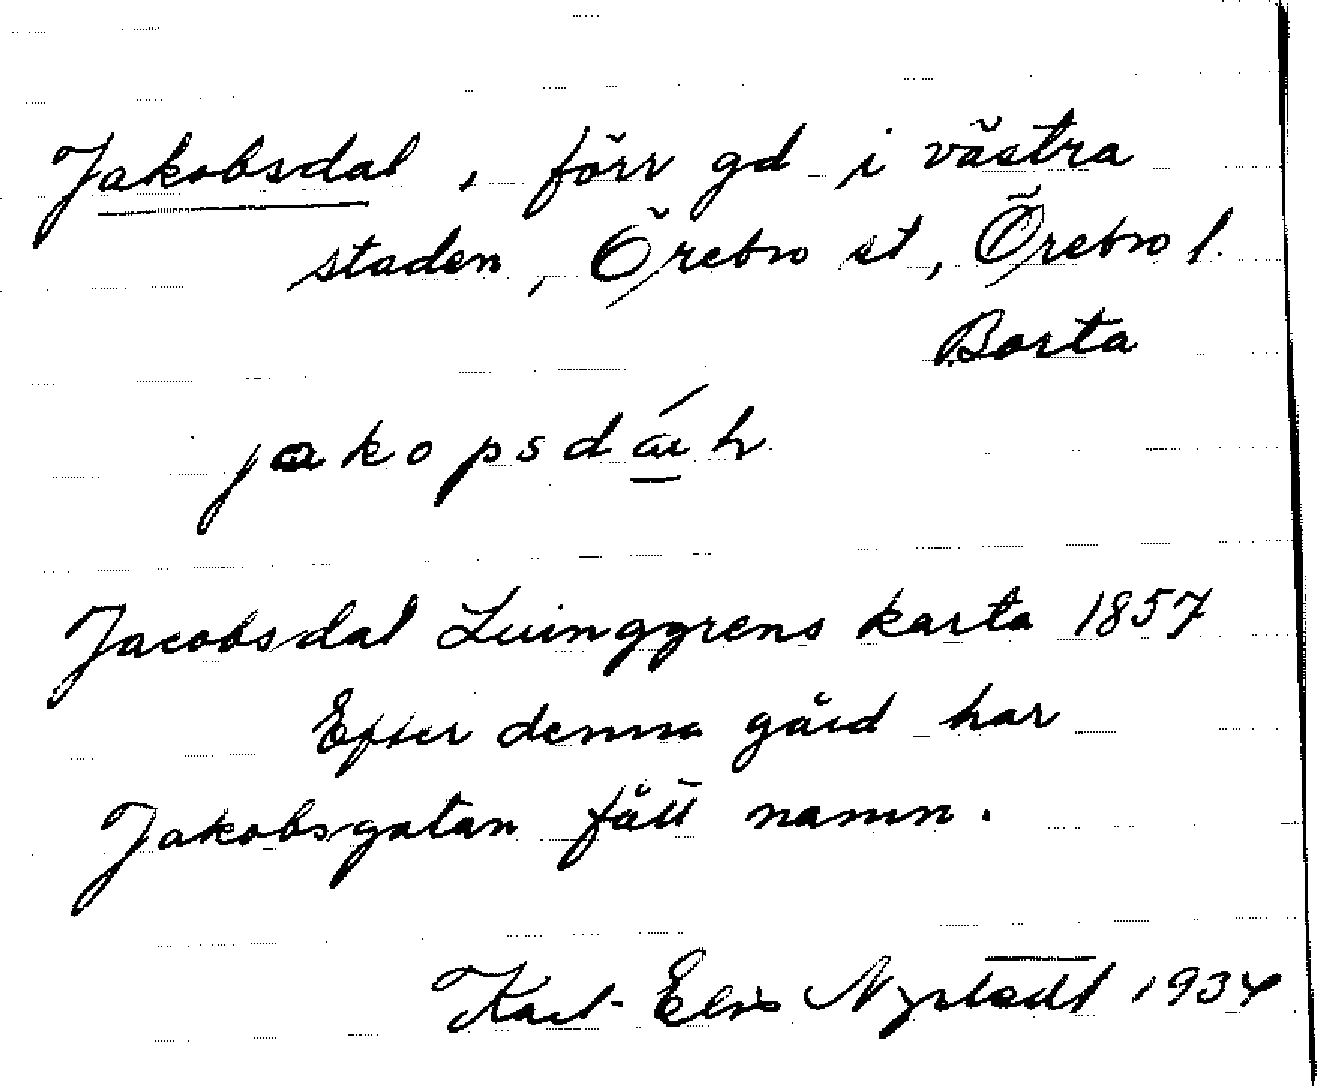 Jakobsdal, förr gd i västra
staden, Örebro st, Örebro l.
Borta
Jacobsdal Luinggrens karta 1857
Efter denna gård har
Jakobsgatan fått namn.
Karl-Elis Nystedt 1934